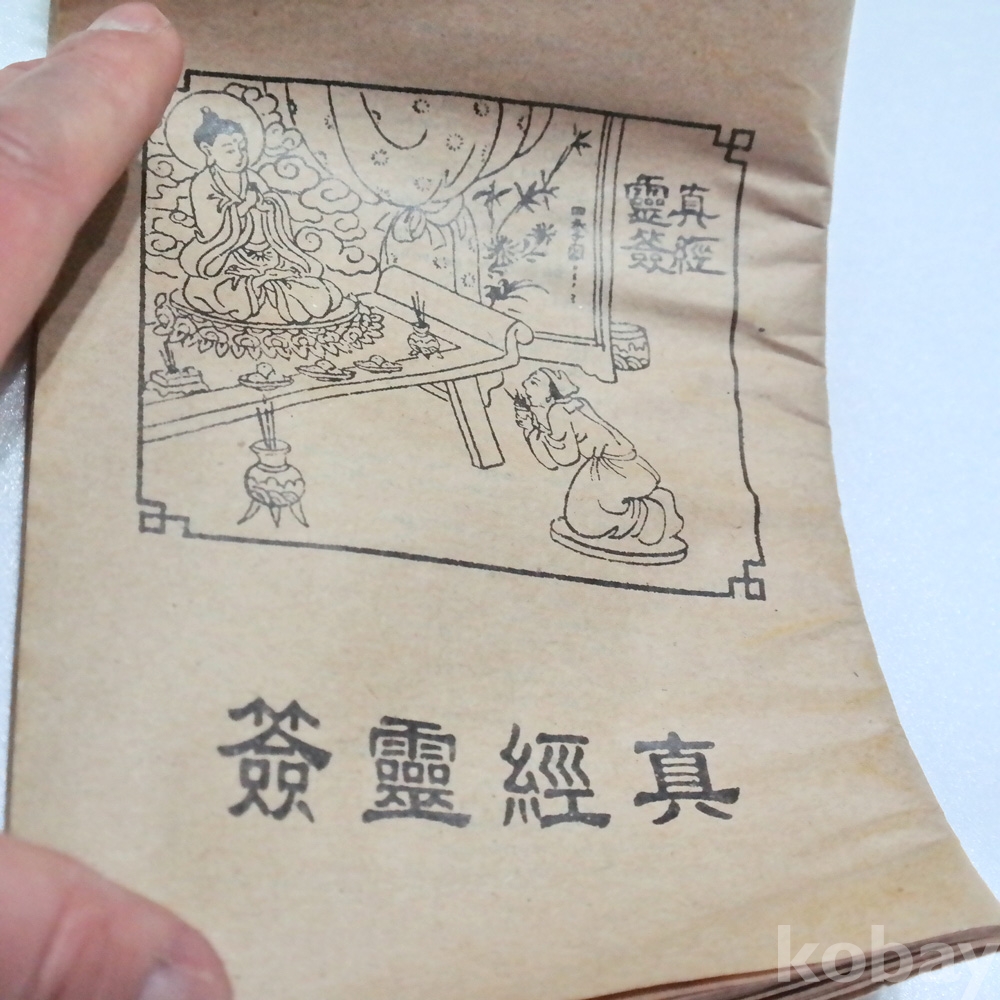 真經
靈簽
真經靈簽
kobay